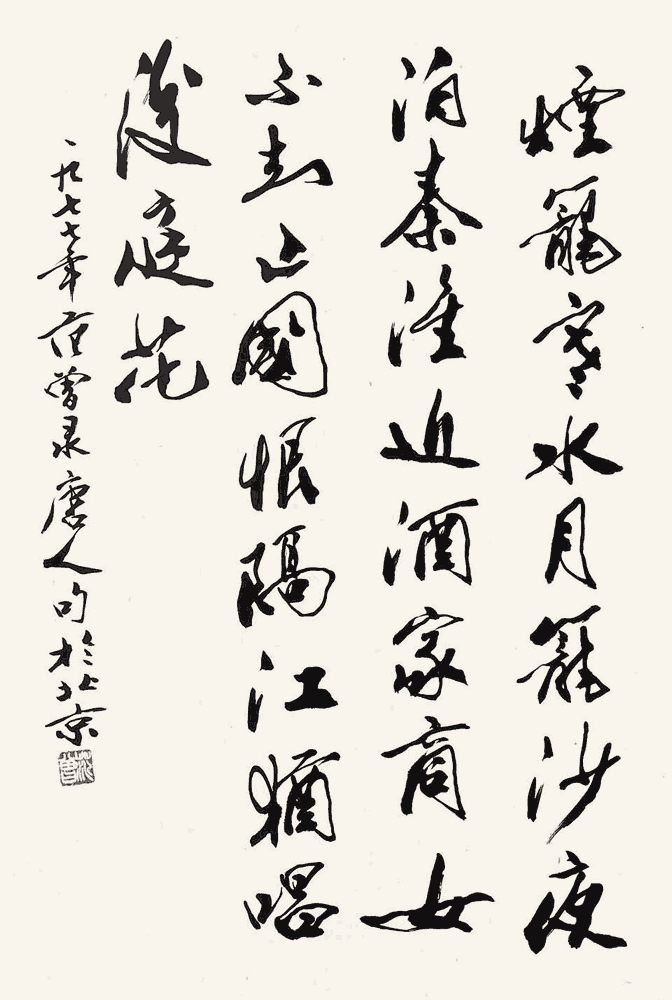 煙籠寒水月籠沙夜
泊秦淮近酒家商女
不知亡國恨隔江猶唱
後庭花
一九七七年范曾录唐人句於北京
范曾